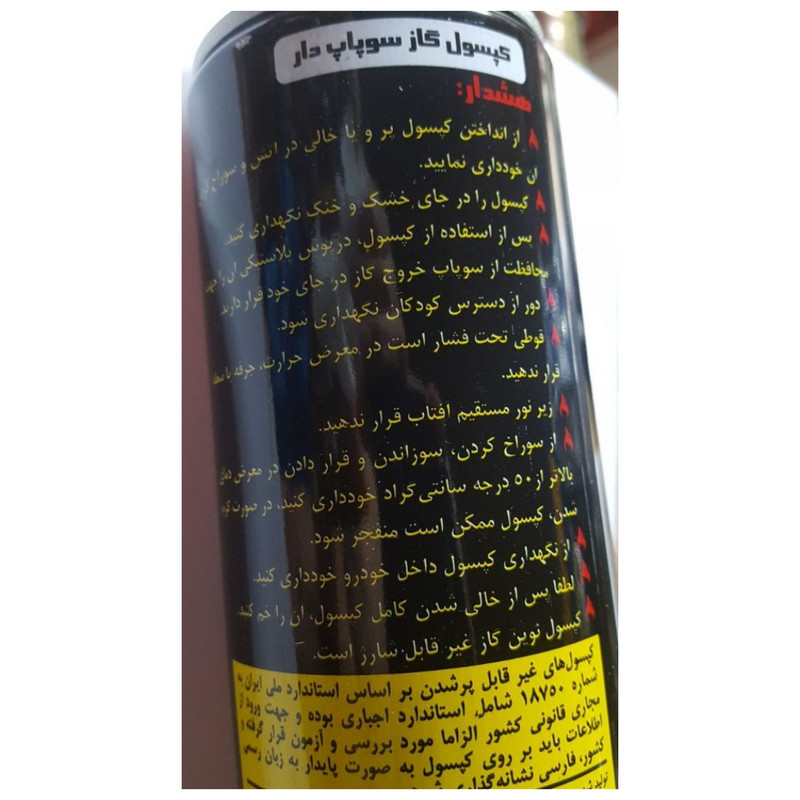 کپسول گاز سوپاپ دار
هشدار:
از انداختن کپسول پر و یا خالی در اتش و سوراخ
ان خودداری نمایید.
کپسول را در جای خشک و خنک نگهداری کنید.
پس از استفاده از کپسول، درپوش پلاستیکی ان را جهت
محافظت از سوپاپ خروج گاز در جای خود قرار دارید.
دور از دسترس کودکان نگهداری شود.
قوطی تحت فشار است در معرض حرارت، جرقه یا شعله
قرار ندهید.
زیر نور مستقیم افتاب قرار ندهید.
از سوراخ کردن، سوزاندن و قرار دادن در معرض دمای
بالاتر از ۵۰ درجه سانتی گراد خودداری کنید، در صورت گرم
شدن، کپسول ممکن است منفجر شود.
از نگهداری کپسول داخل خودرو خودداری کنید.
لطفا پس از خالی شدن کامل کپسول، ان را خم کنید.
کپسول نوین گاز غیر قابل شارژ است.
کپسول‌های غیر قابل پرشدن بر اساس استاندارد ملی ایران به
شماره ۱۸۷۵۰ شامل استاندارد اجباری بوده و جهت ورود از
مجاری قانونی کشور الزاما مورد بررسی و آزمون قرار گرفته و
اطلاعات باید بر روی کپسول به صورت پایدار به زبان رسمی
کشور، فارسی نشانه‌گذاری